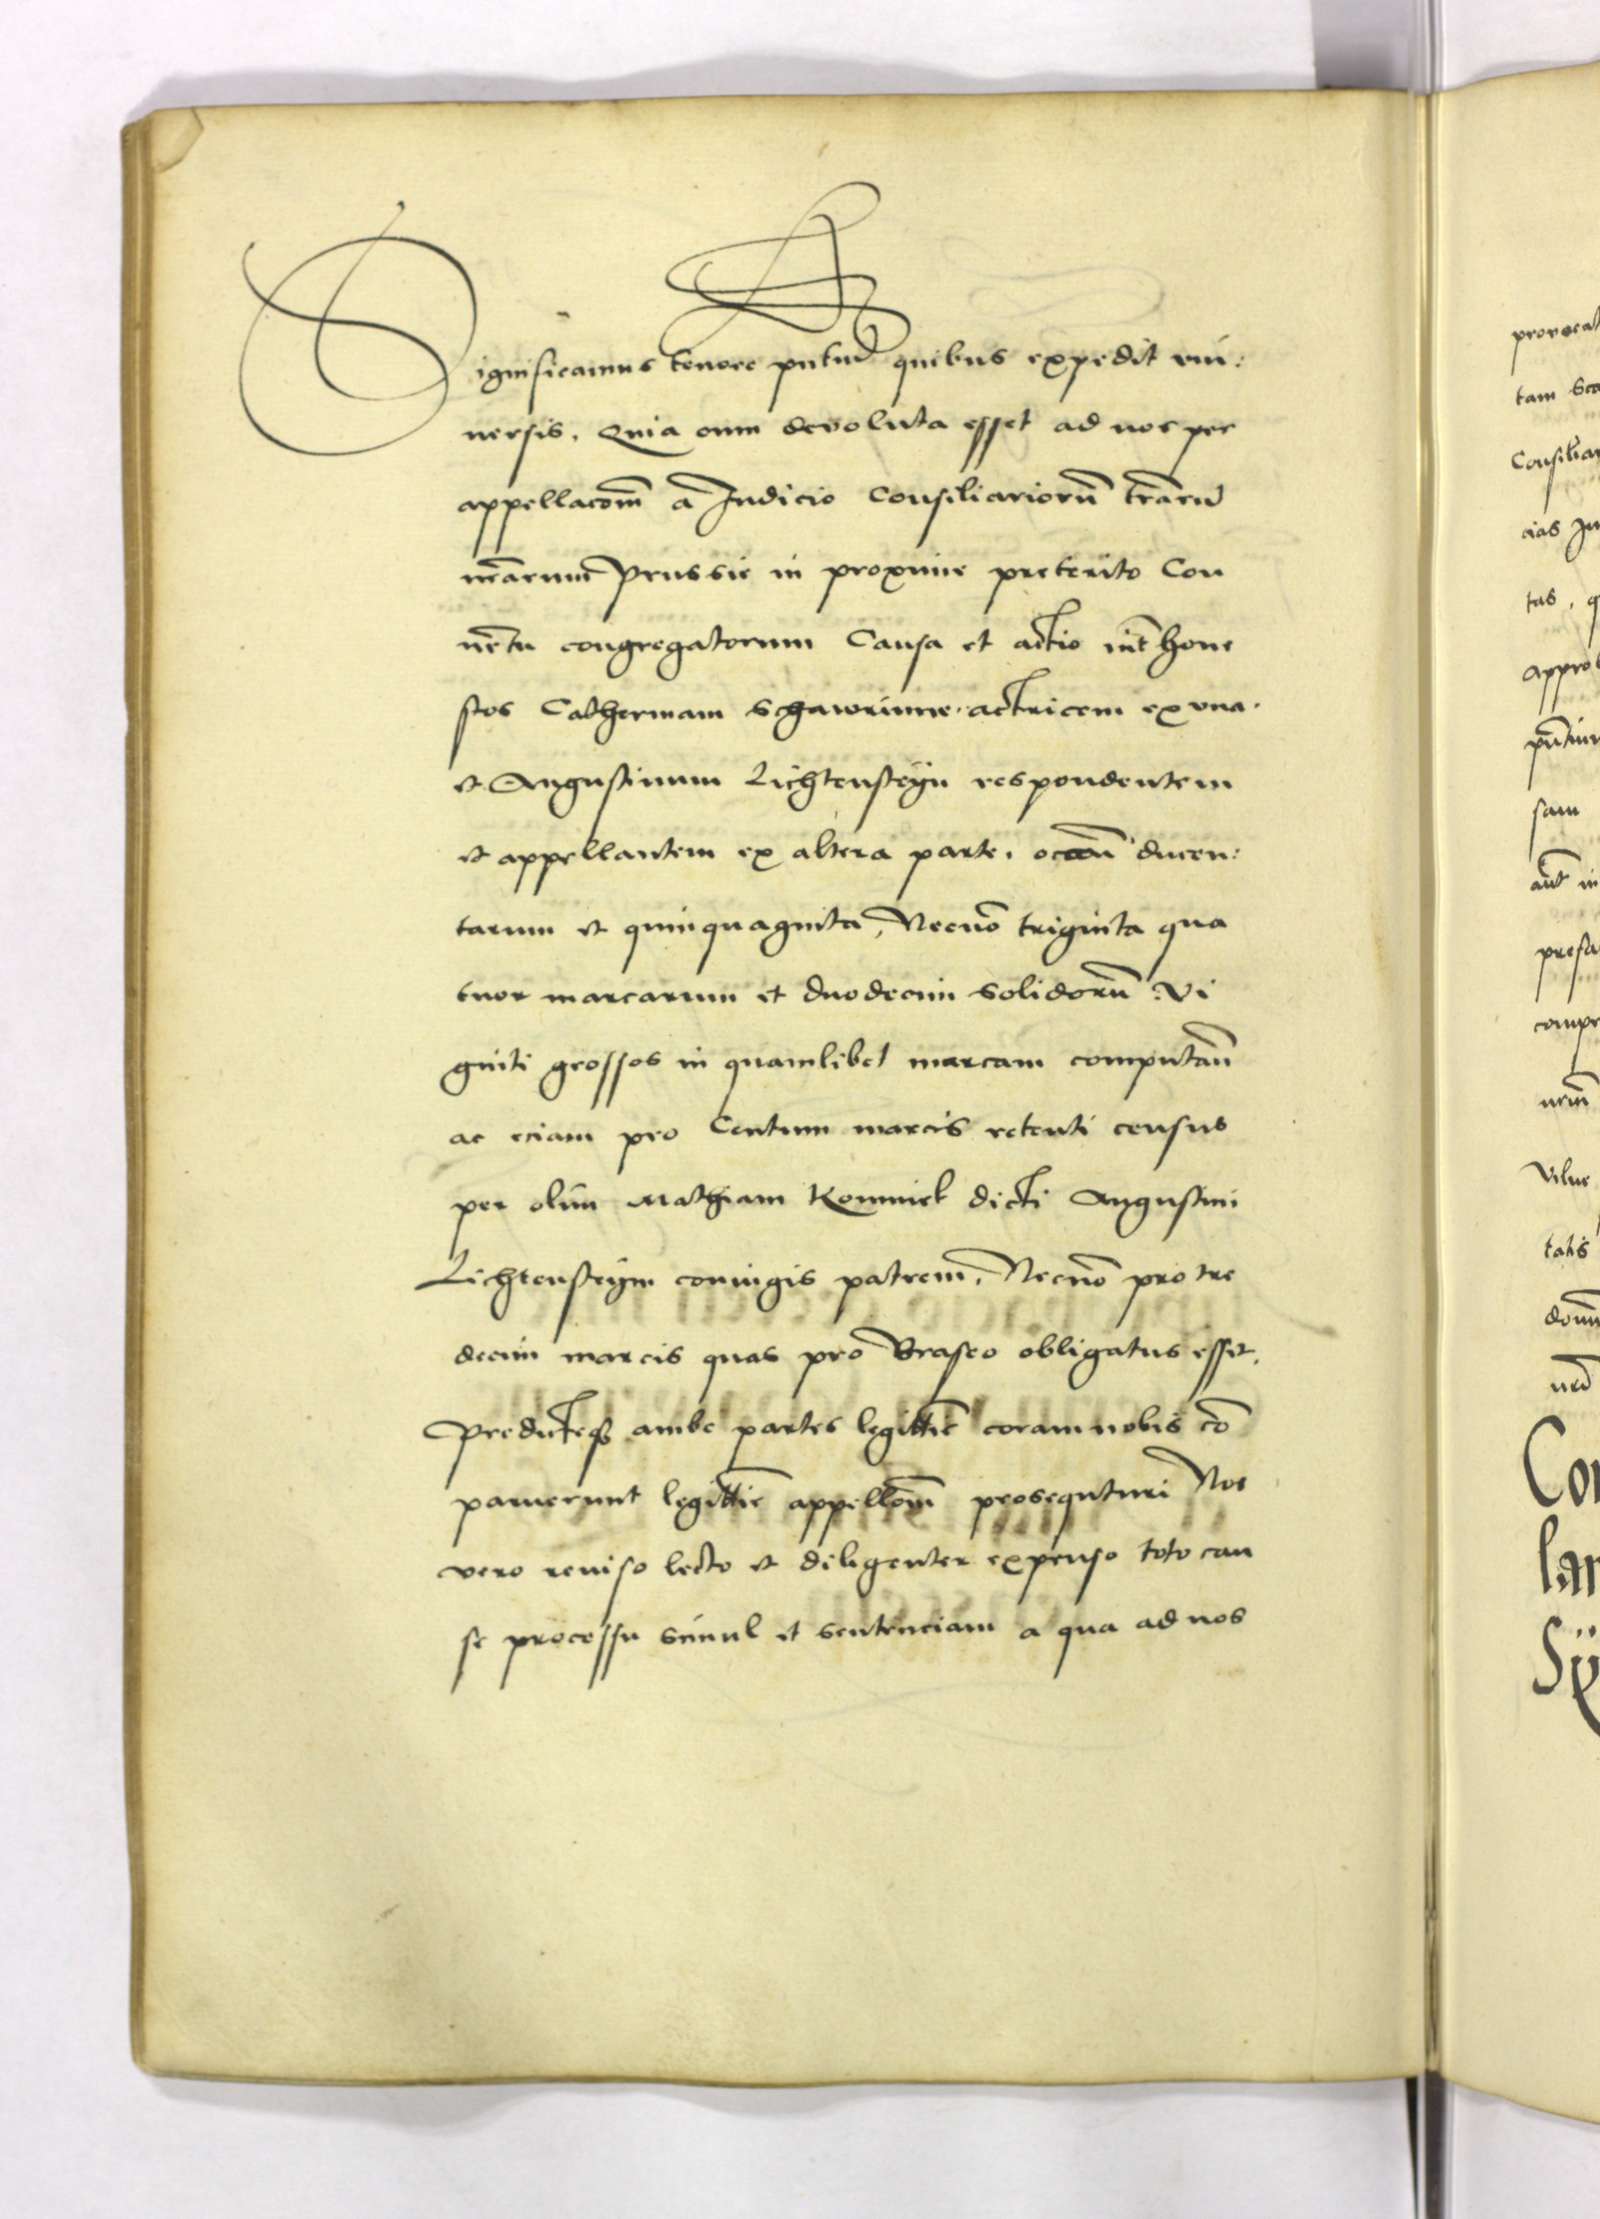 Significamus tenore pntiu quibus expedit vni:
uersis. Quia cum deuoluta esset ad nos per
appellacom a Judicio Consiliarioru trarum
nrarum Prussie in proxime preterito Con
uetu congregatorum Causa et actio int hone
stos Catherinam Schawrinne. actricem ex vna.
et Augustinum Lichtensteyn respondentem
et appellantem ex altera parte. occan ducen:
tarum et quinquaginta, Necno triginta qua
tuor marcarum et duodecim solidoru: Vi
ginti grossos in quamlibet marcam computan
ac eciam pro Centum marcis retenti census
per olim Mathiam Rommel dicti Augustini
Lichtensteyn coniugis patrem, Necno pro tre
decim marcis quas pro Braseo obligatus esset.
Predicteqz ambe partes legittie coram nobis co
paruerunt legittie appellom prosequturi Nos
vero reuiso lecto et diligenter expenso toto cau
se processu simul et sentenciam a qua ad nos
prouocat
tam
Consiliar
cias Ju
tas, q
appro
pntiu
sam
ant in
prefa
compr
nem
talis
Con
lan
Sy